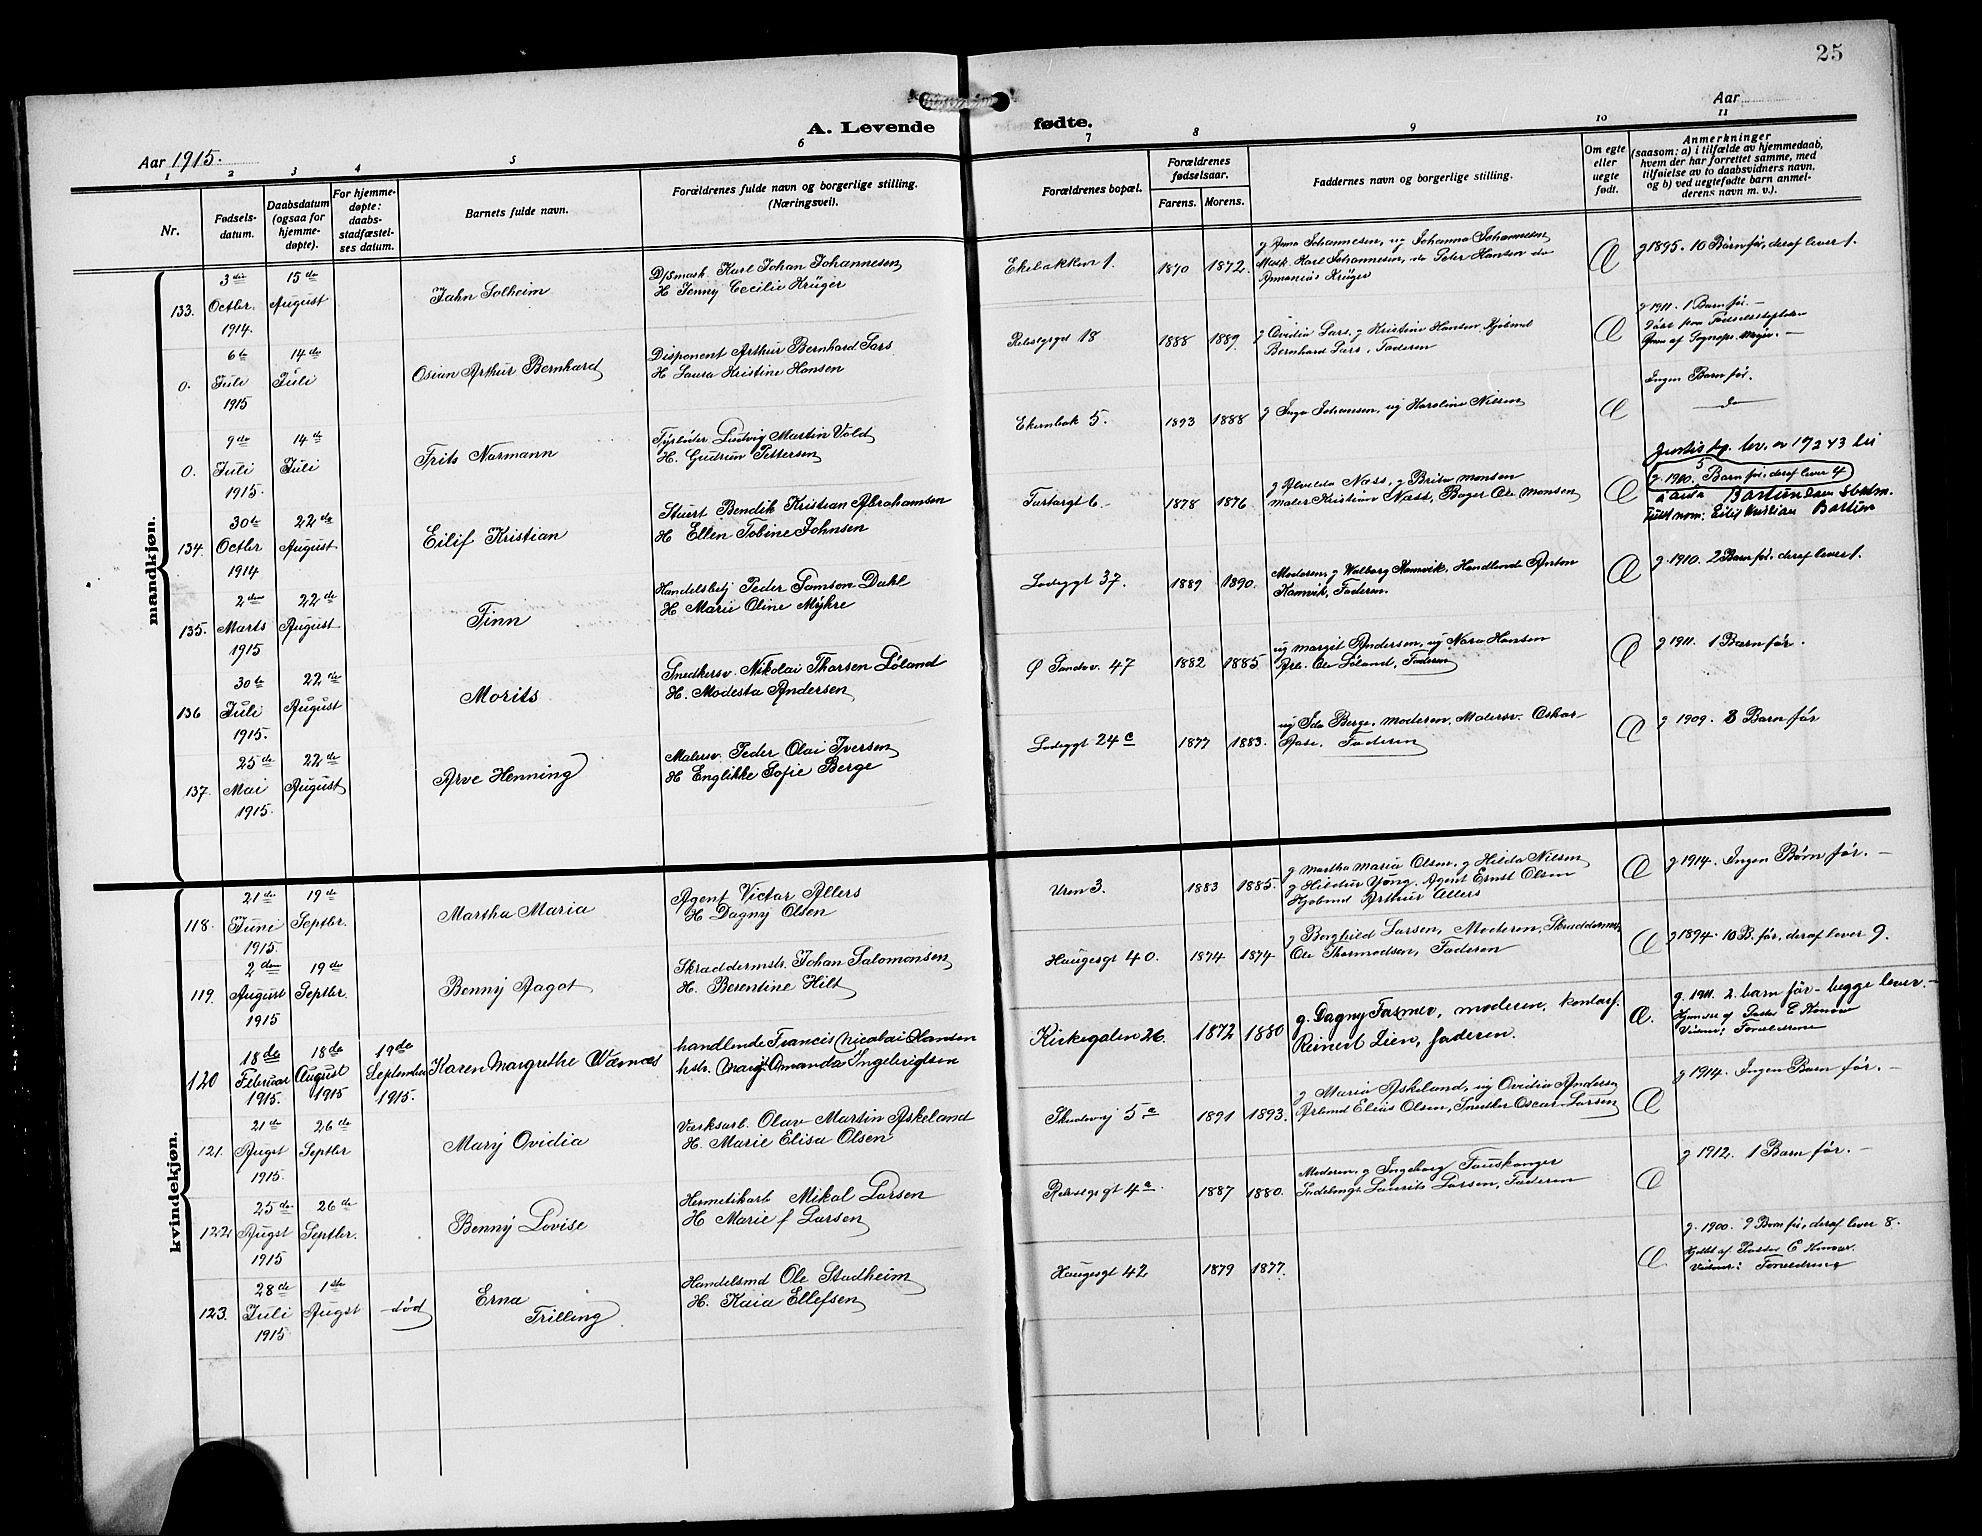 25
A. Levende
fødte.
Aar 1915.
Aar
1 2 3 4 5 6 7 8 9 10 11
Nr.
Fødsels-
datum.
Daabsdatum
(ogsaa for
hjemme-
døpte).
For hjemme-
døpte:
daabs-
stadfæstel-
ses datum.
Barnets fulde navn.
Forældrenes fulde navn og borgerlige stilling.
(Næringsvei).
Forældrenes bopæl.
Forældrenes
fødselsaar.
Farens. Morens.
Faddernes navn og borgerlige stilling.
Om egte
eller
uegte
født.
Anmerkninger
(saasom: a) i tilfælde av hjemmedaab,
hvem der har forrettet samme, med
tilføielse av to daabsvidners navn,
og b) ved uegtefødte barn anmel-
derens navn m. v.).
mandkjøn.
133. 3die Octbr. 1914. 15de August
Jahn Solheim
Karl Johan Johannesen
H Jenny Cecilie Krüger
Ekebakken 1. 1870 1872.
g Anna Johannesen, ug Johanna Johannesen
Mask. Karl Johannesen, do Peter Hansen do
Ananias Krüger
Œ
g 1895. 10 Børn før, deraf lever 1.
0. 6te Juli 1915 14de Juli
Osian Arthur Bernhard
Disponent Arthur Bernhard Lars
H Laura Kristine Hansen
18 1888 1889.
g Ovidia Lars, g Kristine Hansen, Kjøbmd
Bernhard Lars, Faderen
Œ
g 1911. 1 Barn før. –
Døbt paa Fødselsstiftelsen
0. 9de Juli 1915. 14de Juli
Frits Normann
Fyrbøder Ludvig Martin Vold
H. Gudrun Pettersen
5. 1893 1888
g Inga Johansen, ug Karoline Nilsen
Œ
Ingen Barn før.
do
134. 30te Octbr 1914 22de August
Eilif Kristian
Stuert Bendik Kristian Abrahamsen
H Ellen Tobine Johnsen
6. 1878 1876
g Alvilda Næss, g Brita Monsen
Maler Kristian Næss, Bager Ole Monsen
Œ
g 1910. 5 Barn før, deraf lever 4
Bastiansen
Eilif Kristian
135. 2den Marts 1915 22de August
Finn
Handelsbetj Peder Samson Dahl
H Marie Oline Myhre
Lodeggt 37. 1889 1890.
Moderen, g Valborg Hamvik, Handlende Anton
Hamvik, Faderen.
Œ
g 1910. 2 Barn før, deraf lever 1.
136 30te Juli 1915. 22de August
Morits
Snedkersv. Nikolai Thorsen Løland
H. Modesta Andersen
Ø Sandsv. 47 1882 1885
ug Margit Andersen, ug Nora Hansen
Arb. Ole Løland, Faderen
Œ
g 1911. 1 Barn før.
137. 25de Mai 1915. 22de August
Arve Henning
Malersv. Peder Olai Iversen
H Englikke Sofie Berge
Lodeggt 24c 1877 1883.
ug Ida Berge, Moderen, Malersv. Oskar
Aase, Faderen
Œ
g 1909. 3 Barn før
kvindekjøn.
118. 21de Juni 1915. 19de Septbr.
Martha Maria
Agent Victor Allers
H Dagny Olsen
Uren 3. 1883 1885.
g Martha Maria Olsen, g Hilda Nilsen
g Hildur Yong, Agent Ernst Olsen
Kjøbmd Arthur Allers
Œ
g 1914. Ingen Børn før. –
119. 2den August 1915 19de Septbr.
Benny Aagot
Skræddermstr. Johan Salomonsen
H. Berentine Hilt
Haugesgt 40. 1874 1874
g Borgfrid Larsen, Moderen, Skræddermstr
Ole Thormodsen, Faderen
Œ
g 1894. 10 B. før, deraf lever 9.
120 18de Februar 1915. 18de August 1915 19de September 1915.
Karen Margrethe Wærnæs
handlende Francis Nicolai Hansen
hstr. Mary Amanda Ingebrigtsen
Kirkegaten 26. 1872 1880
g. Dagny Fasmer, moderen, kontorf.
Reinert Lien, faderen.
Œ.
g. 1911. 2. barn før – begge lever. –
Vidner, Forældrene
121. 21de Augst 1915. 26de Septbr
Mary Ovidia
Værksarb. Olav Martin Askeland
H. Marie Elisa Olsen
5a 1891 1893.
g Maria Askeland, ug Ovidia Andersen
Arbmd Elias Olsen, Snedker Oscar Larsen
Œ
g 1914. Ingen Barn før. –
122. 25de Augst 1915 26de Septbr.
Benny Lovise
Hermetikarb Mikal Larsen
H Marie f Larsen
4a. 1887 1880.
Moderen, g Ingeborg Fauskanger
Laurits Larsen, Faderen
Œ
g 1912. 1 Barn før. –
123. 28de Juli 1915 1ste Augst død
Erna
Trilling.
Handelsmd Ole Stadheim
H. Kaia Ellefsen
Haugesgt 42 1879 1877.
Œ
g. 1900. 9 Barn før, deraf lever 8.
Vidner: Forældrene